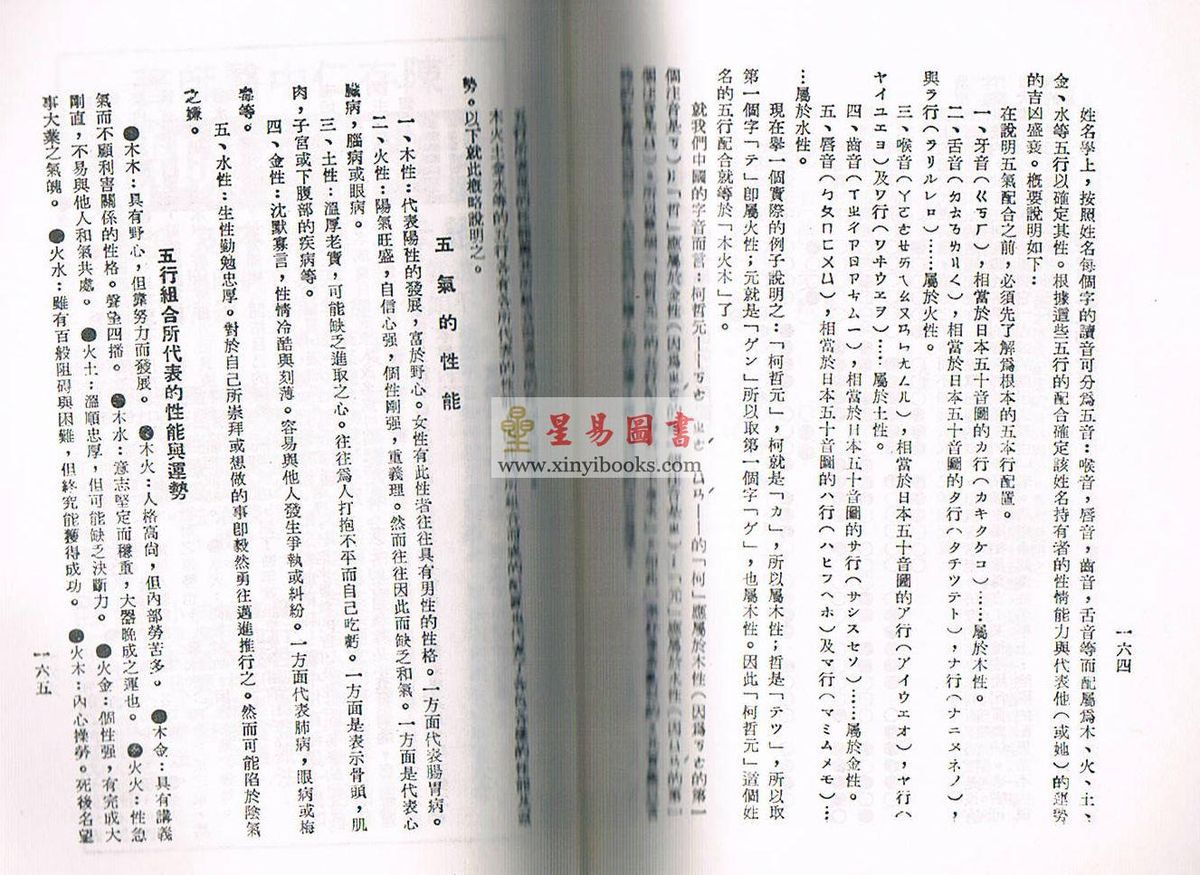 一六四
姓名學上，按照姓名每個字的讀音可分爲五音：喉音，唇音，齒音，舌音等而配屬爲木、火、土、
金、水等五行以確定其性。根據這些五行的配合確定該姓名持有者的性情能力與代表他（或她）的運勢
的吉凶盛衰。概要說明如下：
在說明五氣配合之前，必須先了解爲根本的五本行配置。
一、牙音（ㄍㄎㄏ），相當於日本五十音圖的カ行（カキクケコ）……屬於木性。
二、舌音（ㄉㄊㄋㄌㄐㄑ），相當於日本五十音圖的タ行（タチツテト），ナ行（ナニヌネノ），
與ラ行（ラリルレロ）……屬於火性。
三、喉音（ㄚㄛㄜㄝㄞㄟㄠㄡㄢㄣㄤㄥㄦ），相當於日本五十音圖的ア行（アイウエオ），ヤ行（
ヤイユエヨ）及ワ行（ワヰウヱヲ）……屬於土性。
四、齒音（ㄒㄓㄔㄕㄖㄗㄘㄙㄧ），相當於日本五十音圖的サ行（サシスセソ）……屬於金性。
五、唇音（ㄅㄆㄇㄈㄨㄩ），相當於日本五十音圖的ハ行（ハヒフヘホ）及マ行（マミムメモ）…
…屬於水性。
現在擧一個實際的例子說明之：「柯哲元」，柯就是「カ」，所以屬木性；哲是「テツ」，所以取
第一個字「テ」即屬火性；元就是「ゲン」所以取第一個字「ゲ」，也屬木性。因此「柯哲元」這個姓
名的五行配合就等於「木火木」了。
就我們中國的字音而言：柯哲元——ㄎㄜ ㄓㄜ ㄩㄢ——的「柯」應屬於木性（因爲ㄎㄜ的第一
個注音是ㄎ）；「哲」應屬於金性（因爲
「元」應屬於水性（因ㄩㄢ的第一
勢。以下就此概略說明之。
五氣的性能
一、木性：代表陽性的發展，富於野心。女性有此性者往往具有男性的性格。一方面代表腸胃病。
二、火性：陽氣旺盛，自信心强，個性剛强，重義理。然而往往因此而缺乏和氣。一方面是代表心
臟病，腦病或眼病。
三、土性：溫厚老實，可能缺乏進取之心。往往爲人打抱不平而自己吃虧。一方面是表示骨頭，肌
肉，子宮或下腹部的疾病等。
四、金性：沈默寡言，性情冷酷與刻薄。容易與他人發生爭執或糾紛。一方面代表肺病，眼病或梅
毒等。
五、水性：生性勤勉忠厚。對於自己所崇拜或想做的事即毅然勇往邁進推行之。然而可能陷於陰氣
之嫌。
五行組合所代表的性能與運勢
●木木：具有野心，但靠努力而發展。 ●木火：人格高尚，但內部勞苦多。 ●木金：具有講義
氣而不顧利害關係的性格。聲望四播。 ●木水：意志堅定而穩重，大器晚成之運也。 ●火火：性急
剛直，不易與他人和氣共處。 ●火土：溫順忠厚，但可能缺乏決斷力。 ●火金：個性强，有完成大
事大業之氣魄。 ●火水：雖有百般阻碍與困難，但終究能獲得成功。 ●火木：內心操勞。死後名望
一六五
星易圖書
www.xinyibooks.com